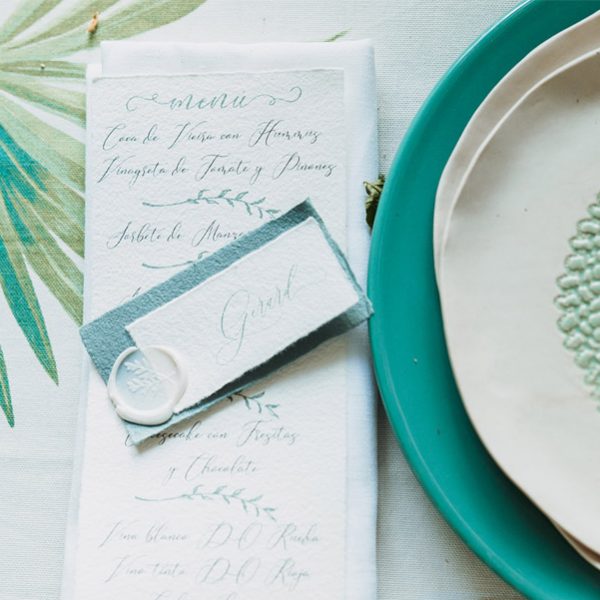 menú
Coca de Vieira con Hummuz
Vinagreta de Tomate y Pinones
Sorbete de
Gerard
Cheesecake con Fresitas
y Chocolate
Vino blanco D-O Rueda
Vino tinto D-O Rioja